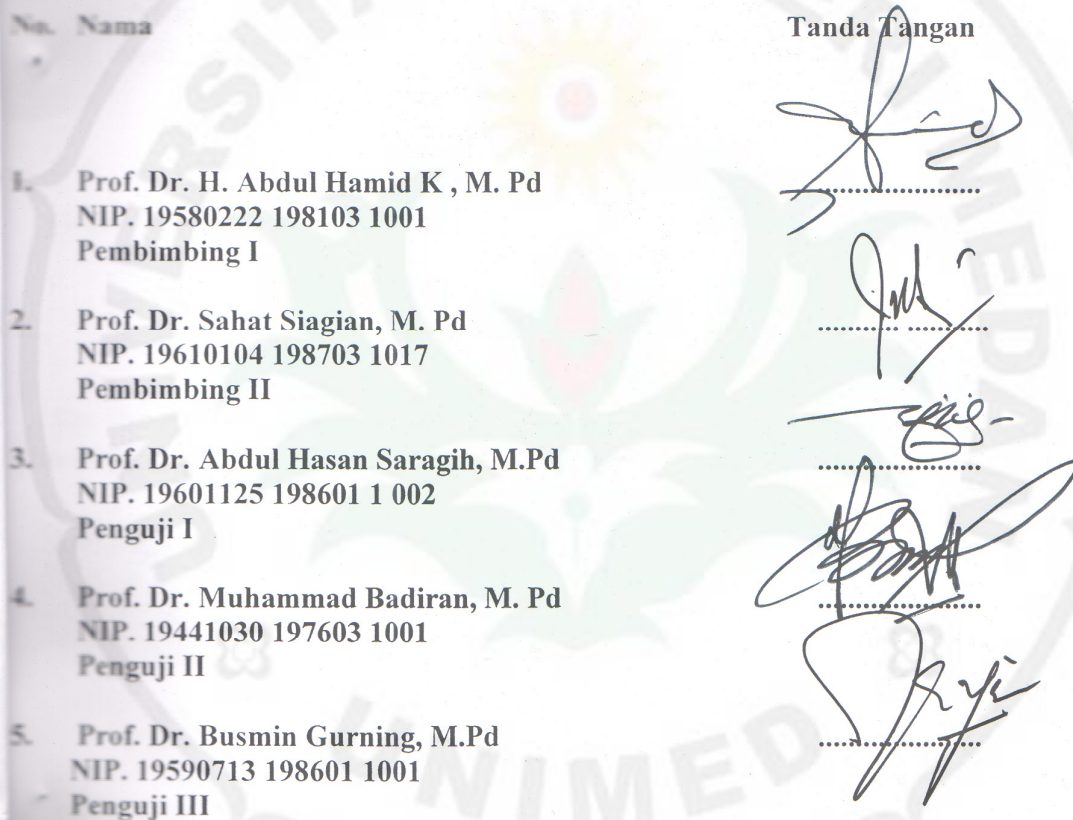 No. Nama Tanda Tangan
1. Prof. Dr. H. Abdul Hamid K , M. Pd ....................
NIP. 19580222 198103 1001
Pembimbing I
2. Prof. Dr. Sahat Siagian, M. Pd ....................
NIP. 19610104 198703 1017
Pembimbing II
3. Prof. Dr. Abdul Hasan Saragih, M.Pd ....................
NIP. 19601125 198601 1 002
Penguji I
4. Prof. Dr. Muhammad Badiran, M. Pd ....................
NIP. 19441030 197603 1001
Penguji II
5. Prof. Dr. Busmin Gurning, M.Pd ....................
NIP. 19590713 198601 1001
Penguji III
UNIVERSITAS NEGERI MEDAN
UNIMED